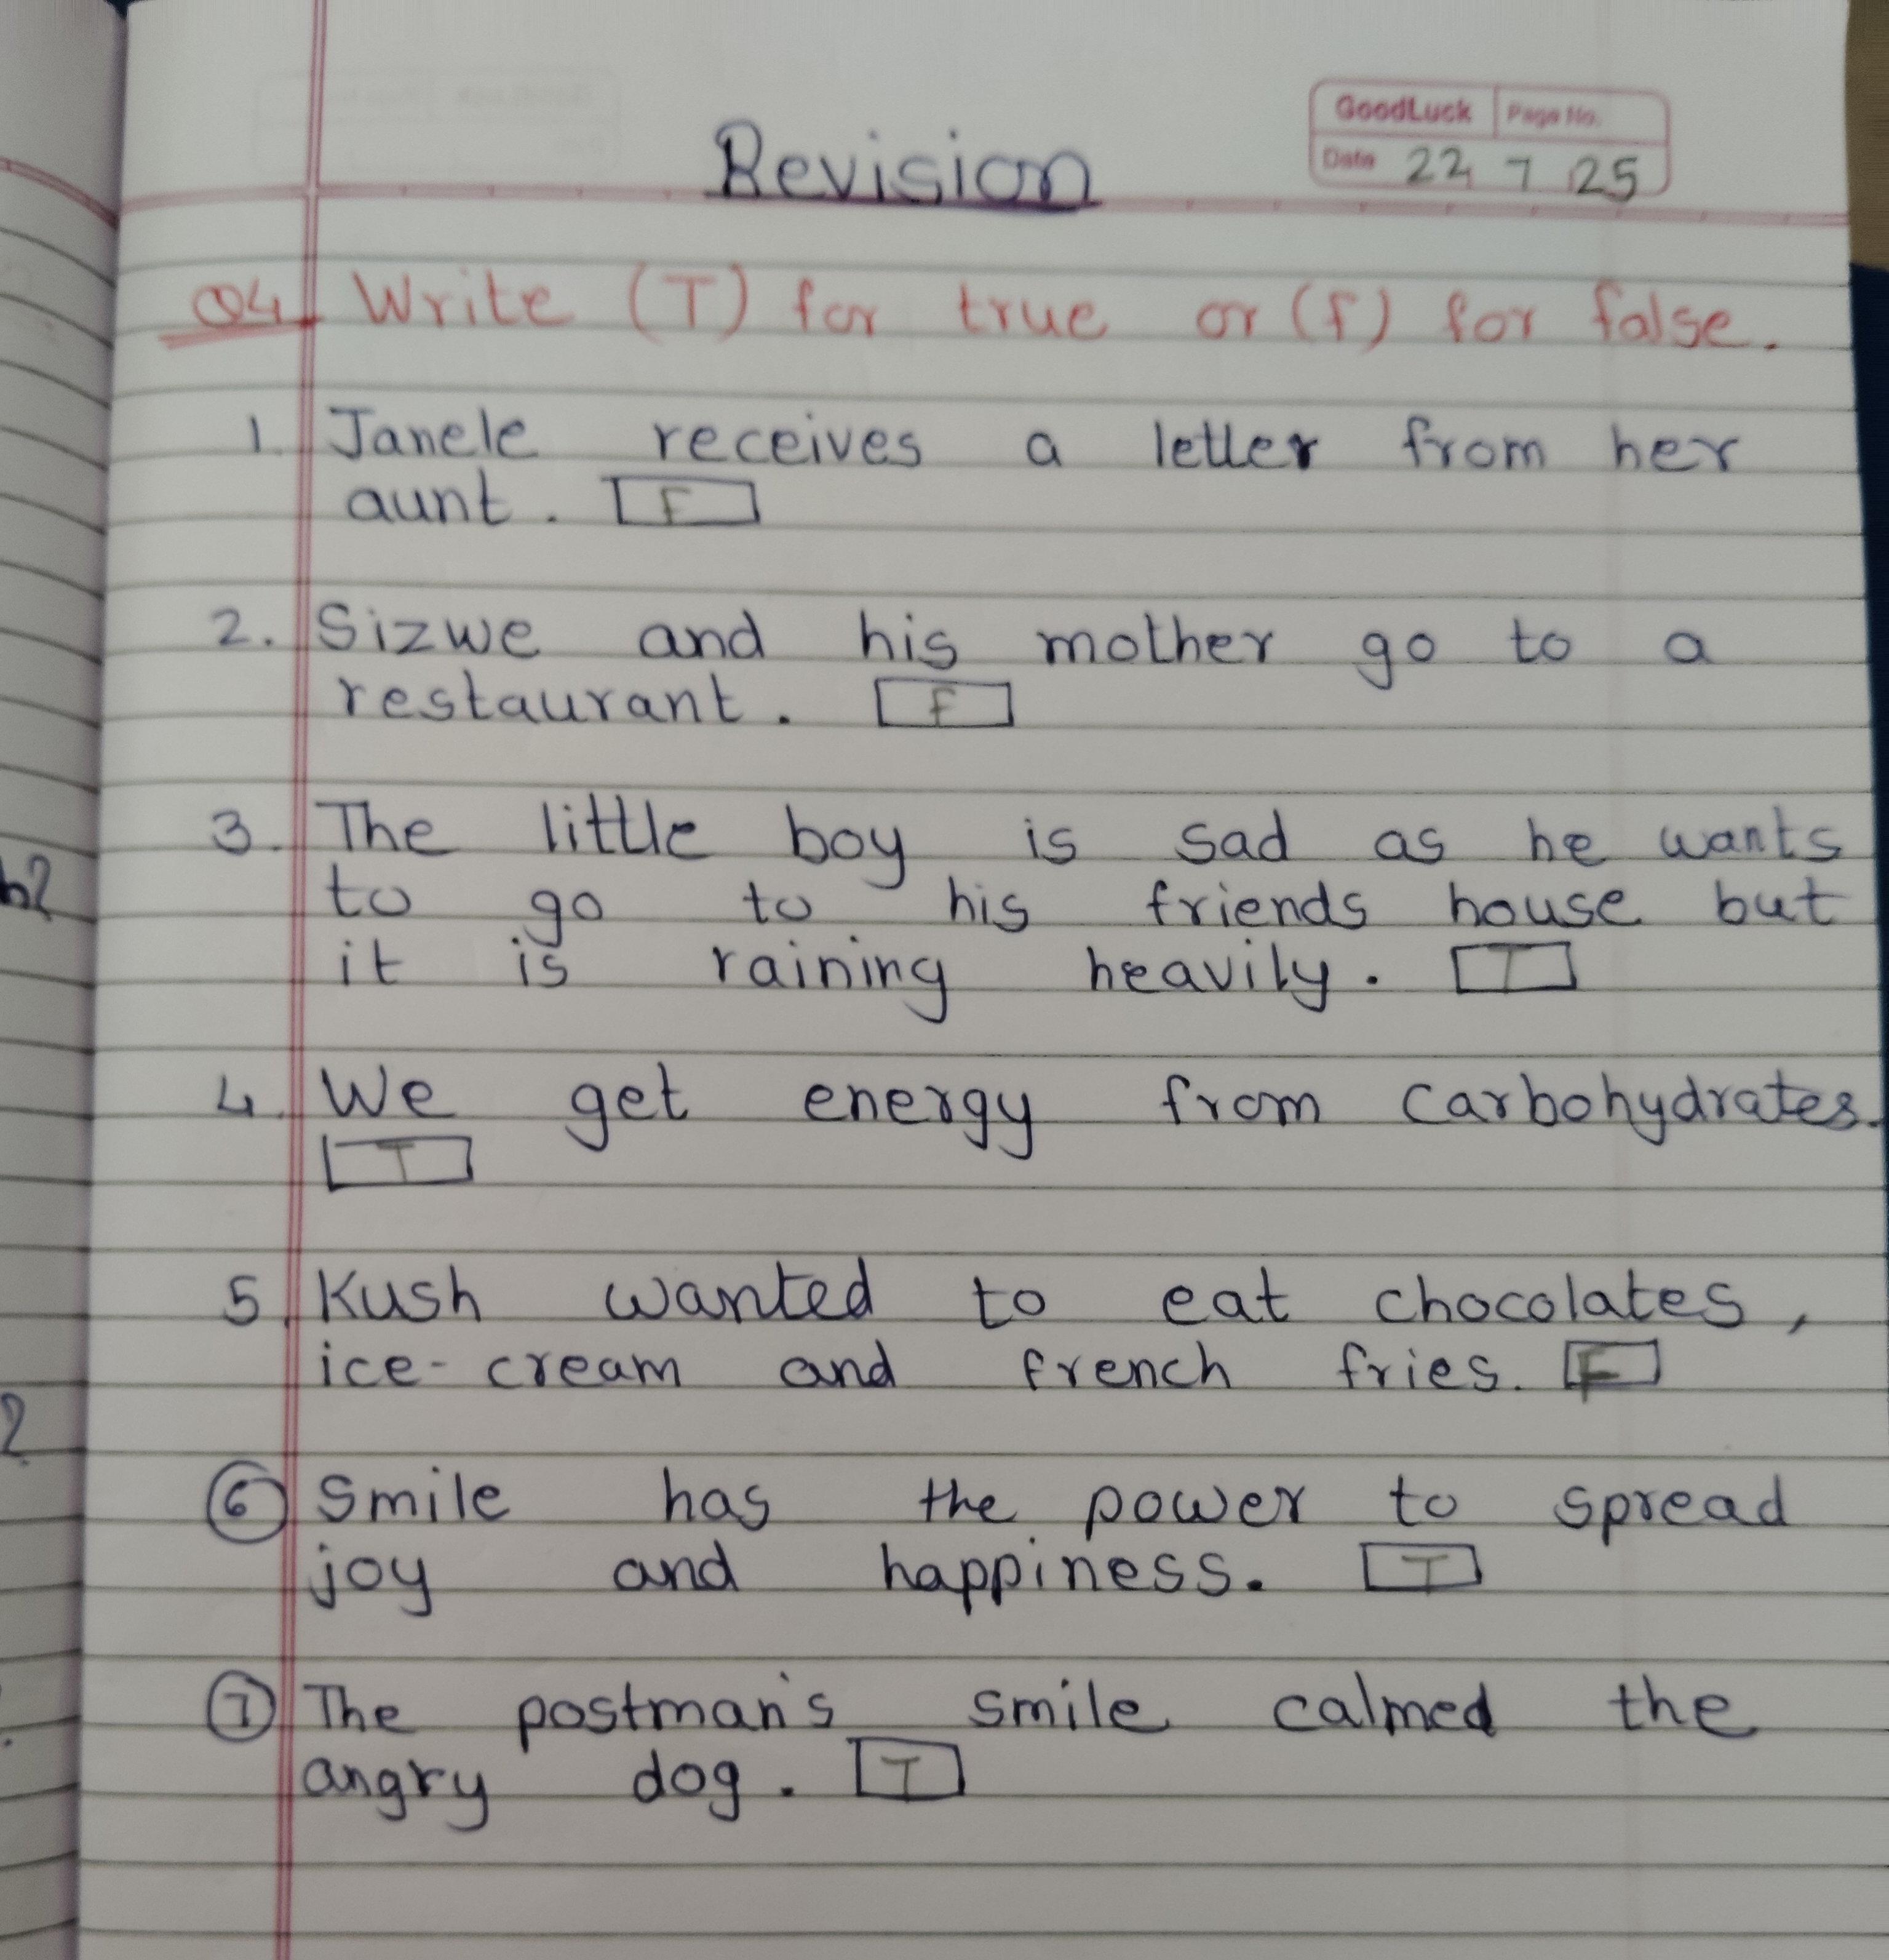 Revision
GoodLuck Page No.
Date 22 7 25
Q4 Write (T) for true or (f) for false.
1. Janele receives a letter from her
aunt. F
2. Sizwe and his mother go to a
restaurant. F
3. The little boy is sad as he wants
to go to his friends house but
it is raining heavily. T
4. We get energy from carbohydrates.
T
5. Kush wanted to eat chocolates,
ice-cream and french fries. F
6 Smile has the power to spread
joy and happiness. T
7 The postman's smile calmed the
angry dog. T